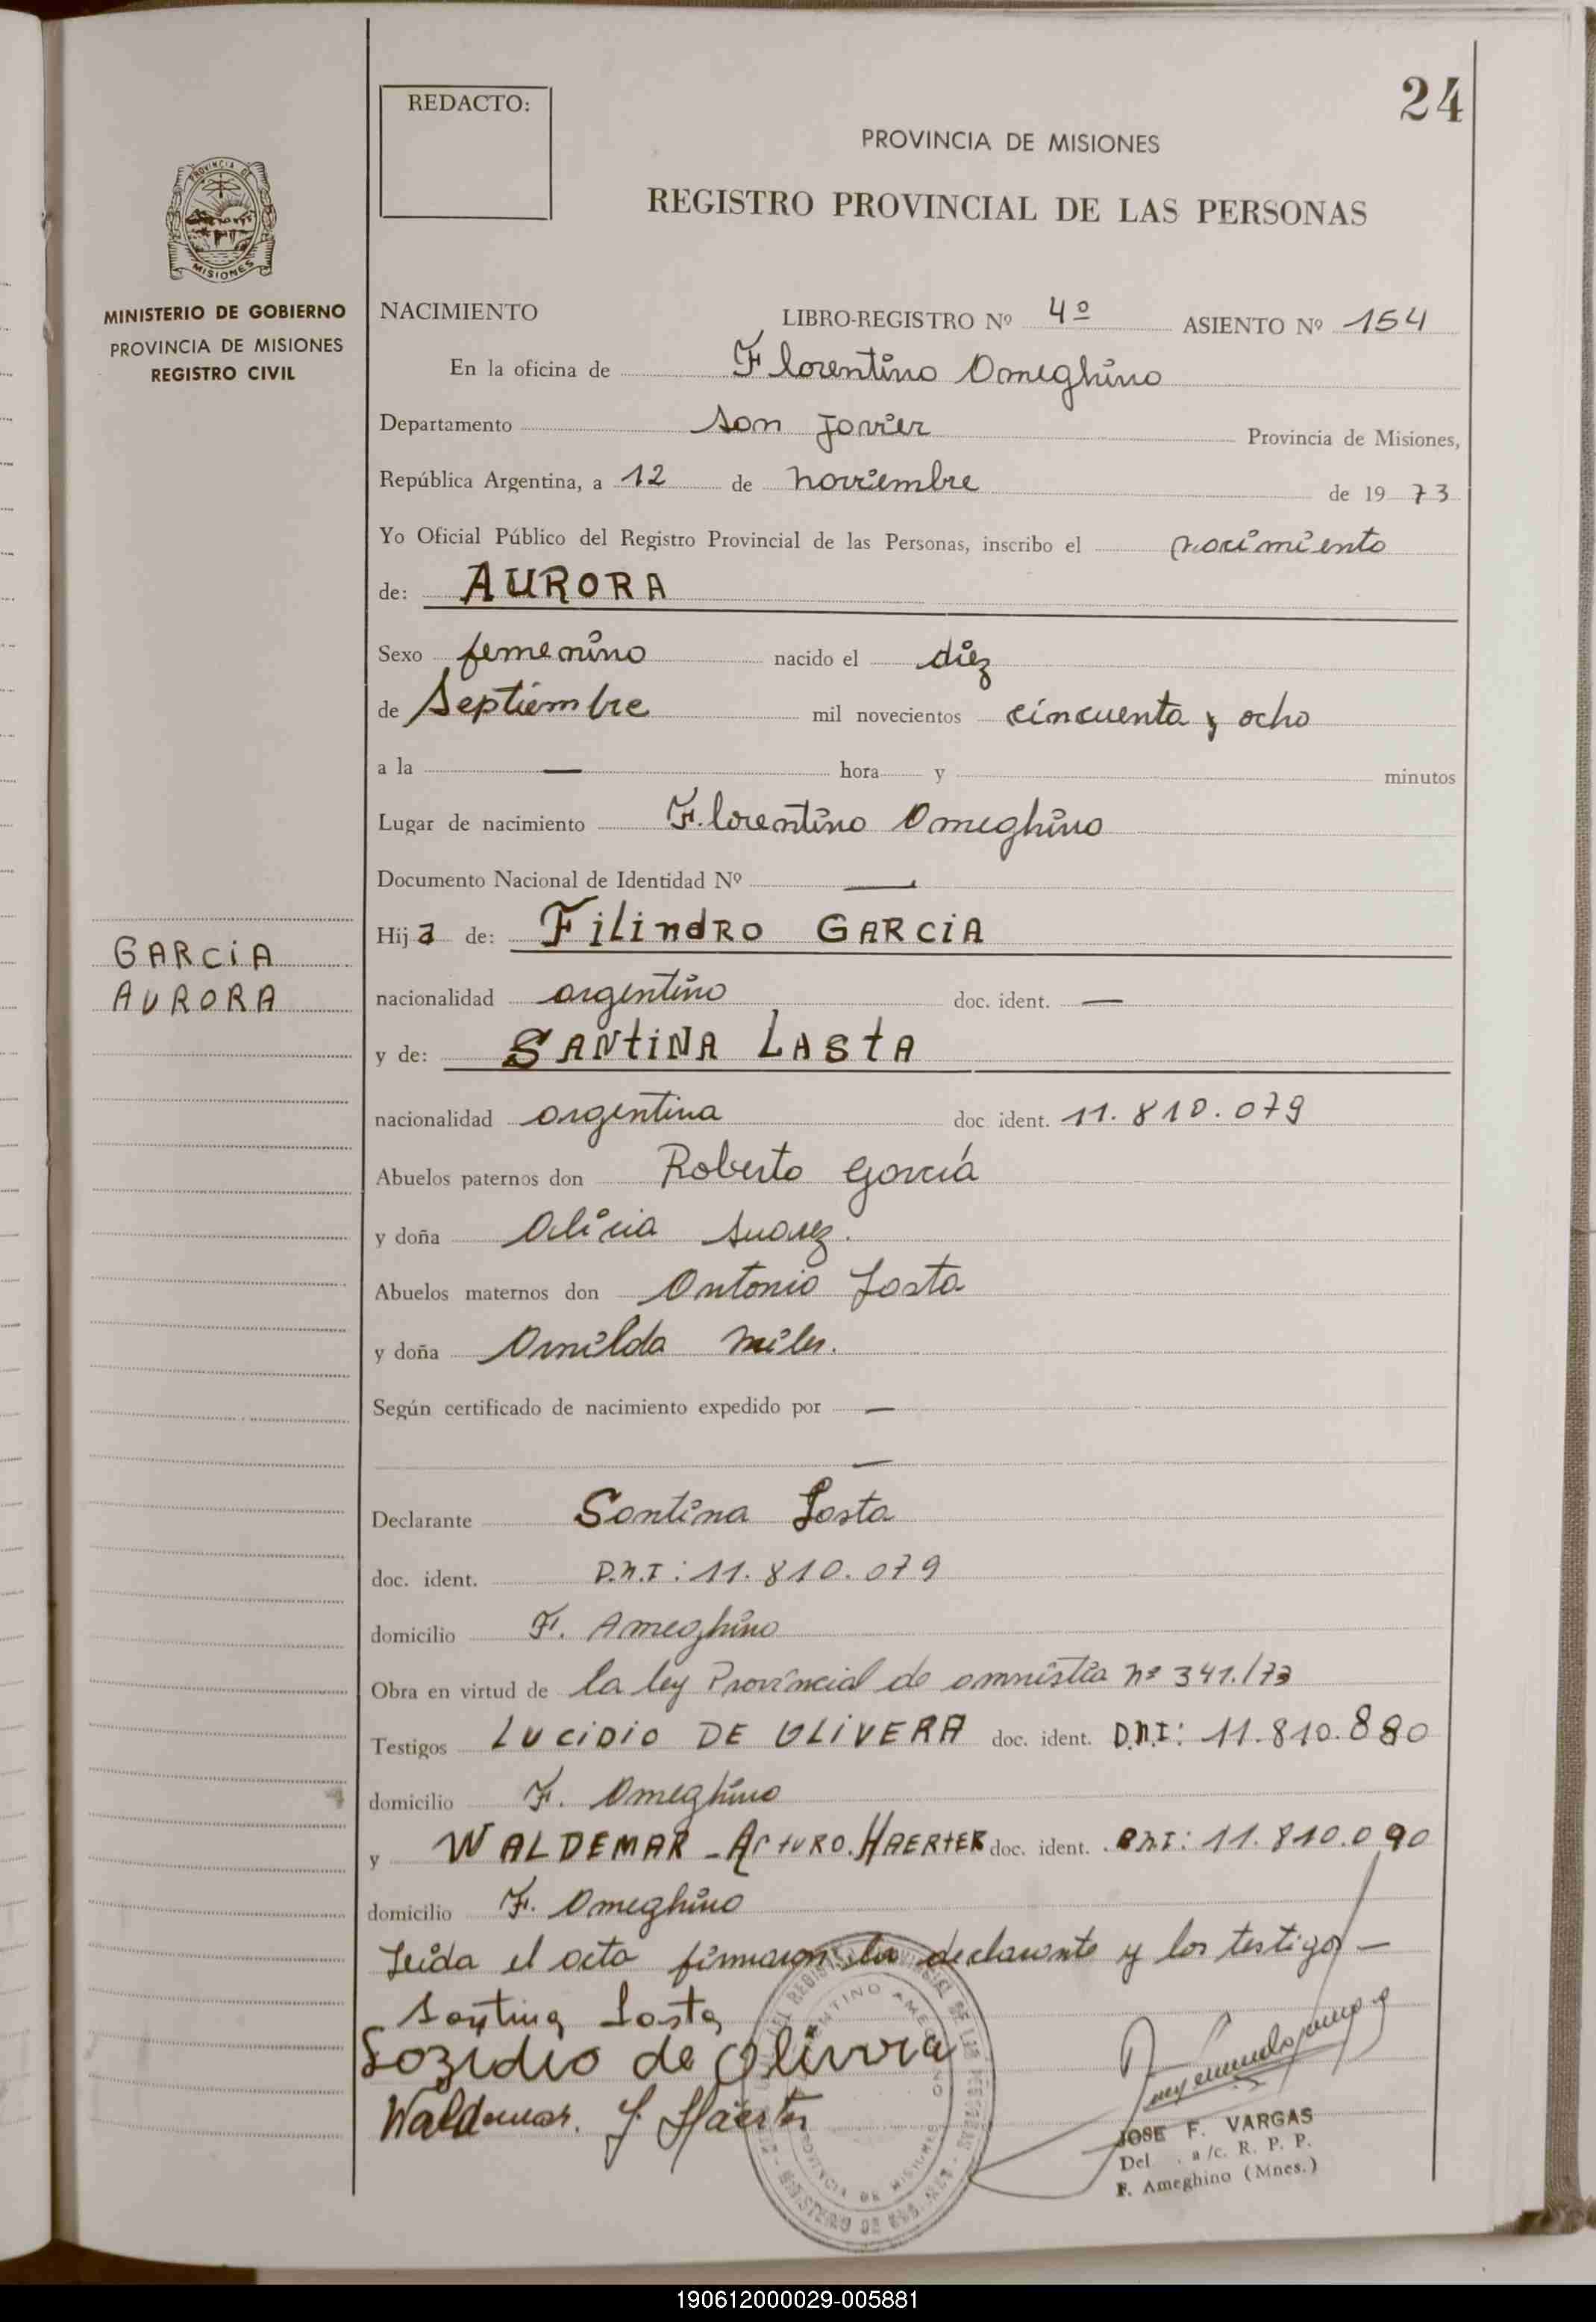 24
REDACTO:
PROVINCIA DE MISIONES
REGISTRO PROVINCIAL DE LAS PERSONAS
PROVINCIA DE
MISIONES
MINISTERIO DE GOBIERNO
PROVINCIA DE MISIONES
REGISTRO CIVIL
NACIMIENTO LIBRO-REGISTRO Nº 4º ASIENTO Nº 154
En la oficina de Florentino Ameghino
Departamento San Javier Provincia de Misiones,
República Argentina, a 12 de noviembre de 19 73
Yo Oficial Público del Registro Provincial de las Personas, inscribo el nacimiento
de: AURORA
Sexo femenino nacido el diez
de Septiembre mil novecientos cincuenta y ocho
a la — hora y minutos
Lugar de nacimiento Florentino Ameghino
Documento Nacional de Identidad Nº —
Hija de: Filindro GARCIA
GARCIA
AURORA
nacionalidad argentino doc. ident. —
y de: SANTINA LASTA
nacionalidad argentina doc ident. 11.810.079
Abuelos paternos don Roberto García
y doña Alicia Suarez.
Abuelos maternos don Antonio Lasta
y doña
Según certificado de nacimiento expedido por —
—
Declarante Santina Lasta
doc. ident. D.N.I: 11.810.079
domicilio F. Ameghino
Obra en virtud de la ley Provincial de amnistia nº 341./73
Testigos LUCIDIO DE OLIVERA doc. ident. D.N.I: 11.810.880
domicilio F. Ameghino
y WALDEMAR - ArtURO. HAERTER doc. ident. D.N.I: 11.810.090
domicilio F. Ameghino
Leida el acta firmaron la declarante y los testigos —
Santina Lasta
Lozidio de Olivera
Waldemar. Haerter
JOSE F. VARGAS
Del . a/c. R. P. P.
F. Ameghino (Mnes.)
190612000029-005881